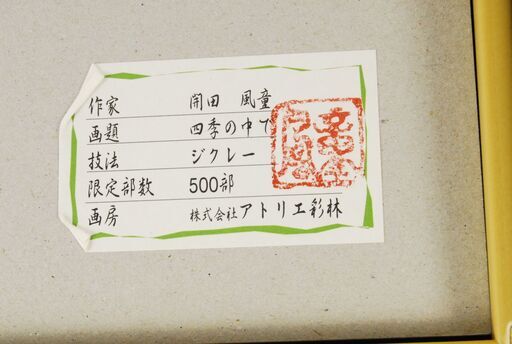 作家 開田 風童
画題 四季の中で
技法 ジクレー
限定部数 500部
画房 株式会社アトリエ彩林